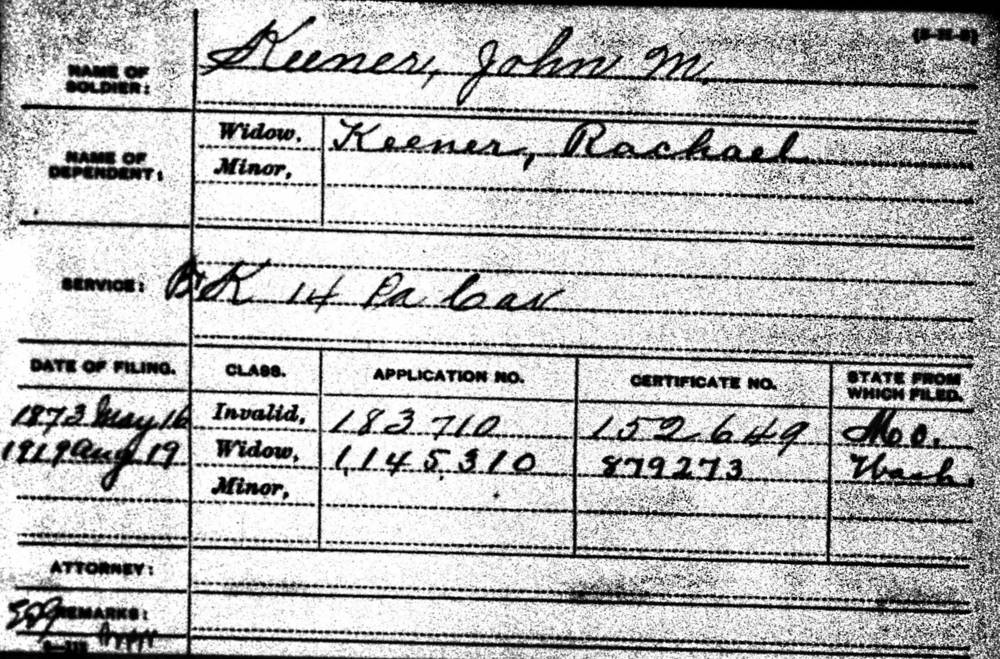 NAME OF SOLDIER: Keener, John M.
NAME OF DEPENDENT: Widow, Keener, Rachael
Minor,
SERVICE: K 14 Pa Cav
DATE OF FILING. CLASS. APPLICATION NO. CERTIFICATE NO. STATE FROM WHICH FILED.
1873 May 16 Invalid, 183 710 152 649 Mo.
1919 Aug 19 Widow, 1,145,310 879273 Wash.
Minor,
ATTORNEY:
REMARKS: